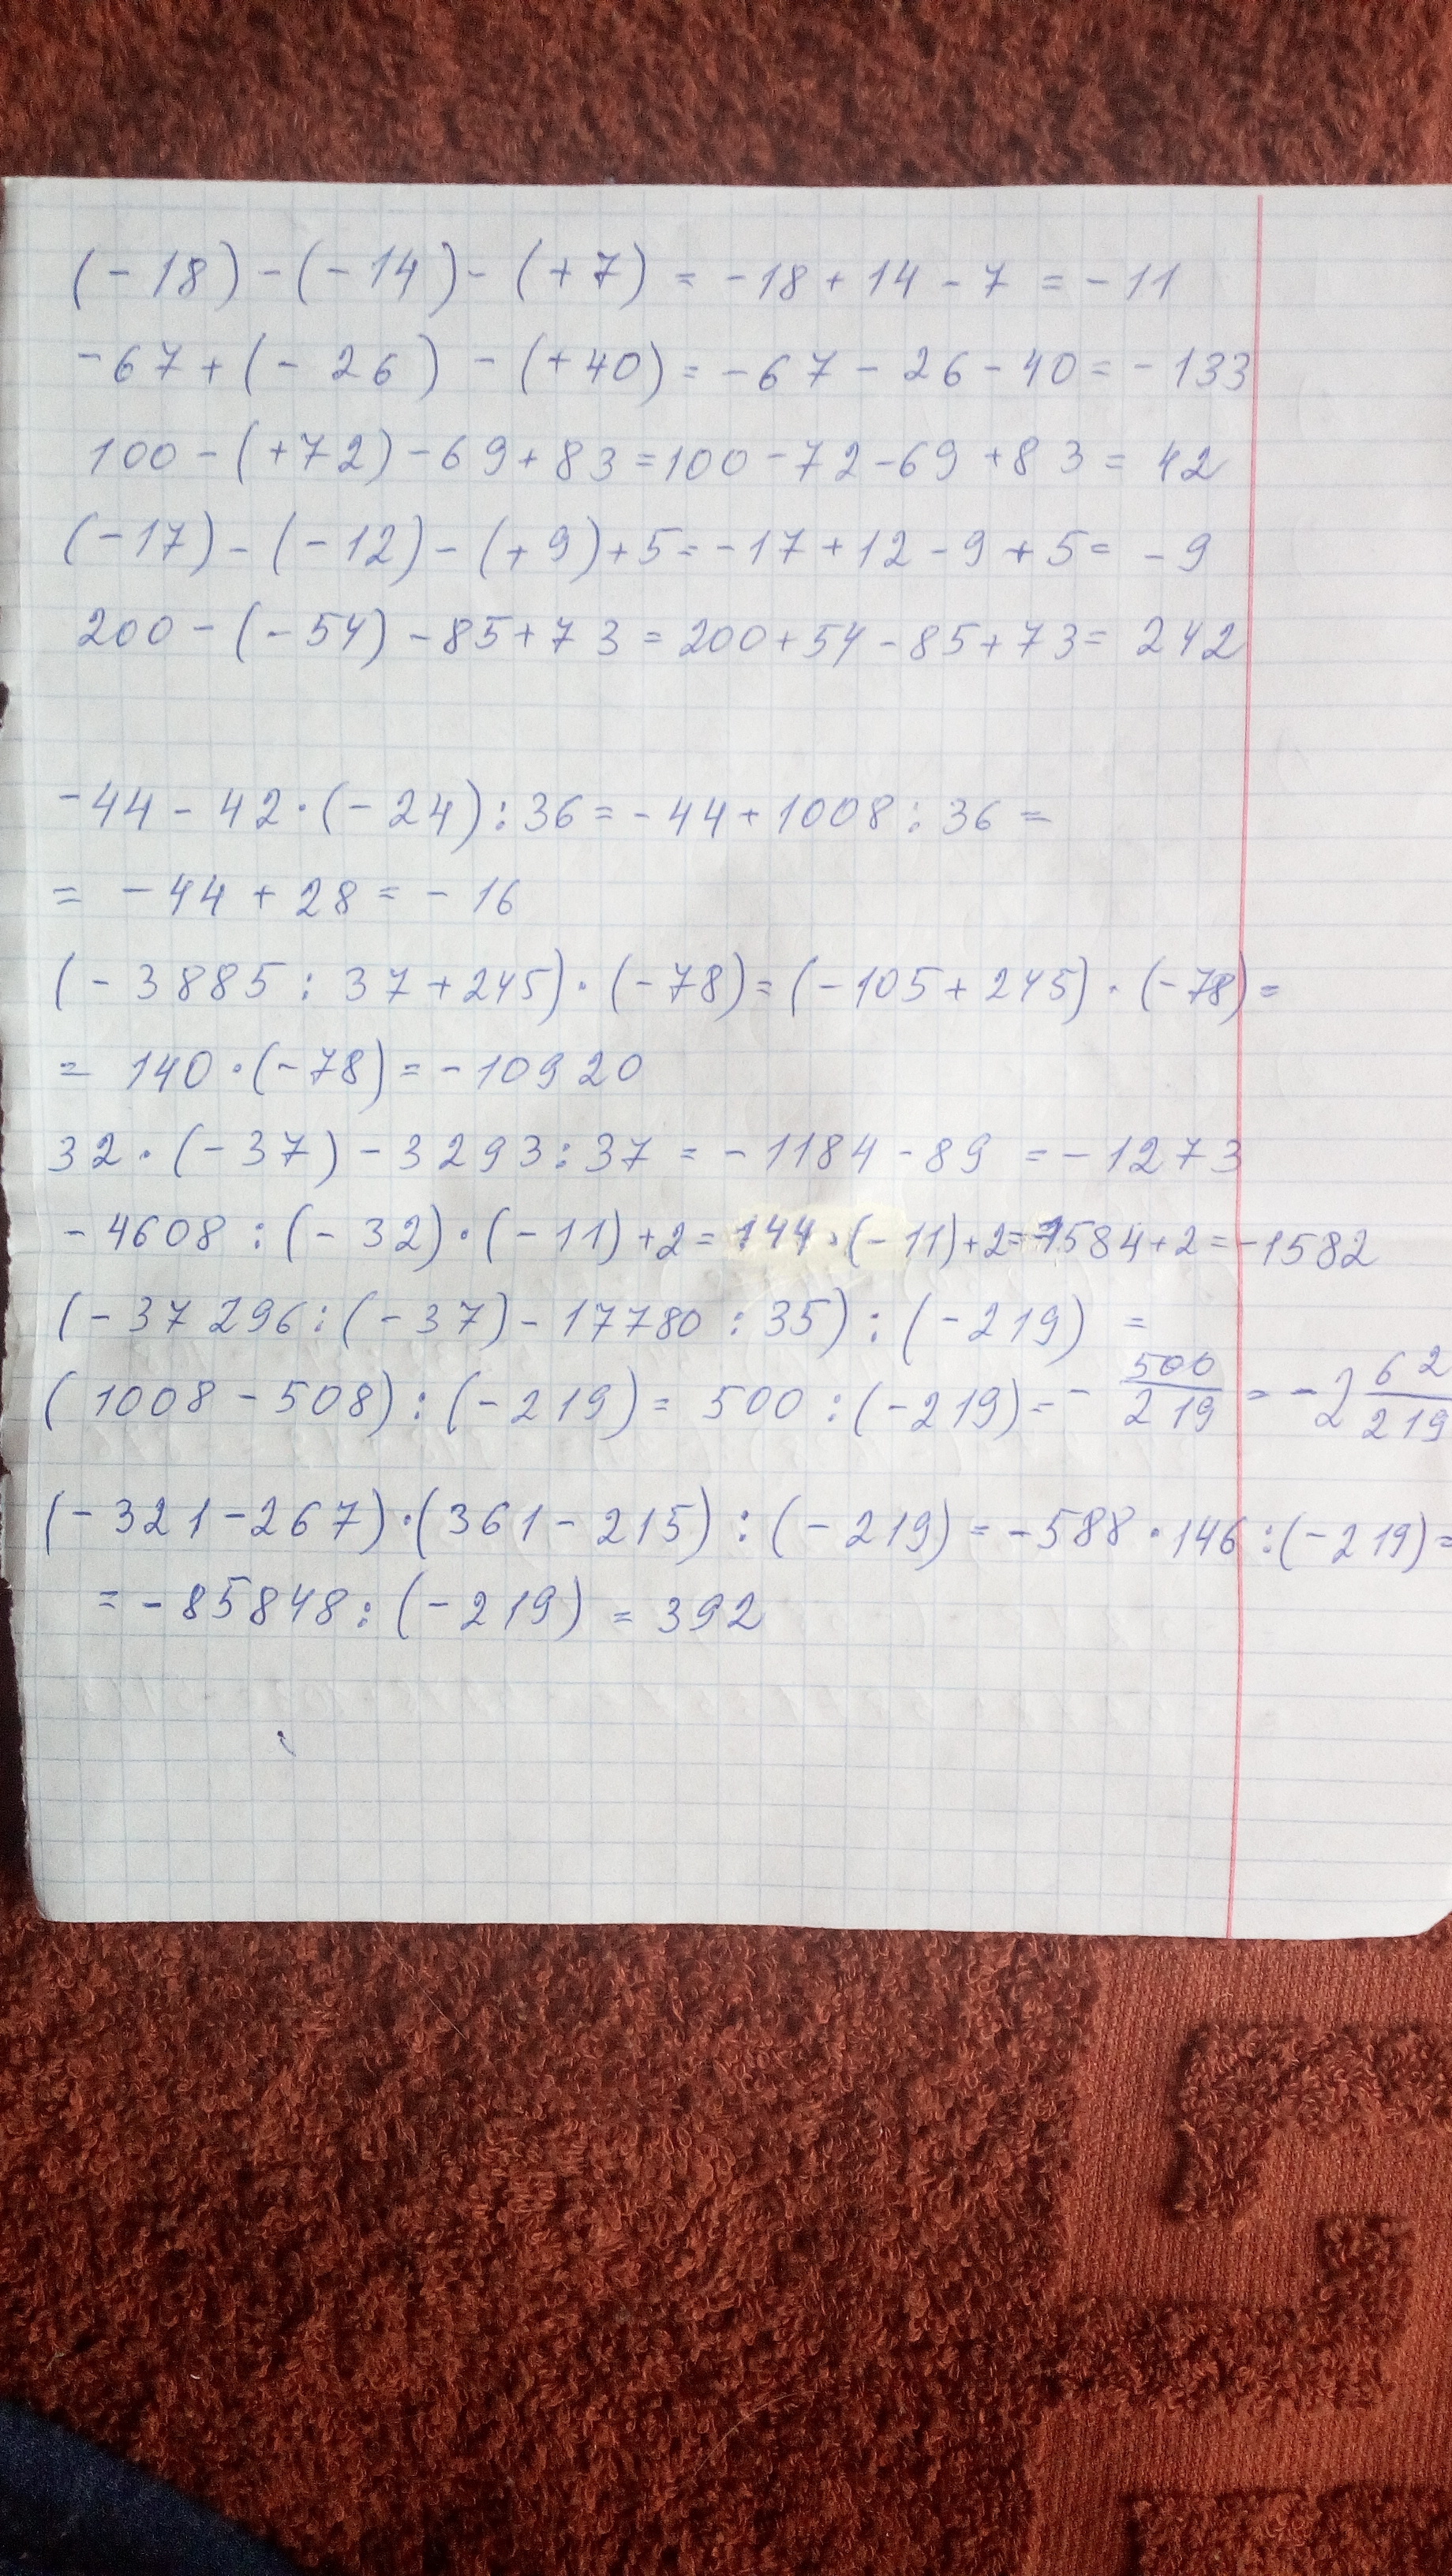 (-18)-(-14)-(+7) = -18+14-7 = -11
-67+(-26)-(+40) = -67-26-40 = -133
100-(+72)-69+83=100-72-69+83= 42
(-17)-(-12)-(+9)+5=-17+12-9+5= -9
200-(-54)-85+73=200+54-85+73= 242
-44-42·(-24):36=-44+1008:36=
= -44+28=-16
(-3885:37+245)·(-78)=(-105+245)·(-78)=
= 140·(-78)=-10920
32·(-37)-3293:37 = -1184-89 =-1273
-4608:(-32)·(-11)+2=144·(-11)+2=-1584+2=-1582
(-37296:(-37)-17780:35):(-219) =
(1008-508):(-219)= 500:(-219)=-500/219=-2 62/219
(-321-267)·(361-215):(-219)=-588·146:(-219)=
=-85848:(-219) = 392